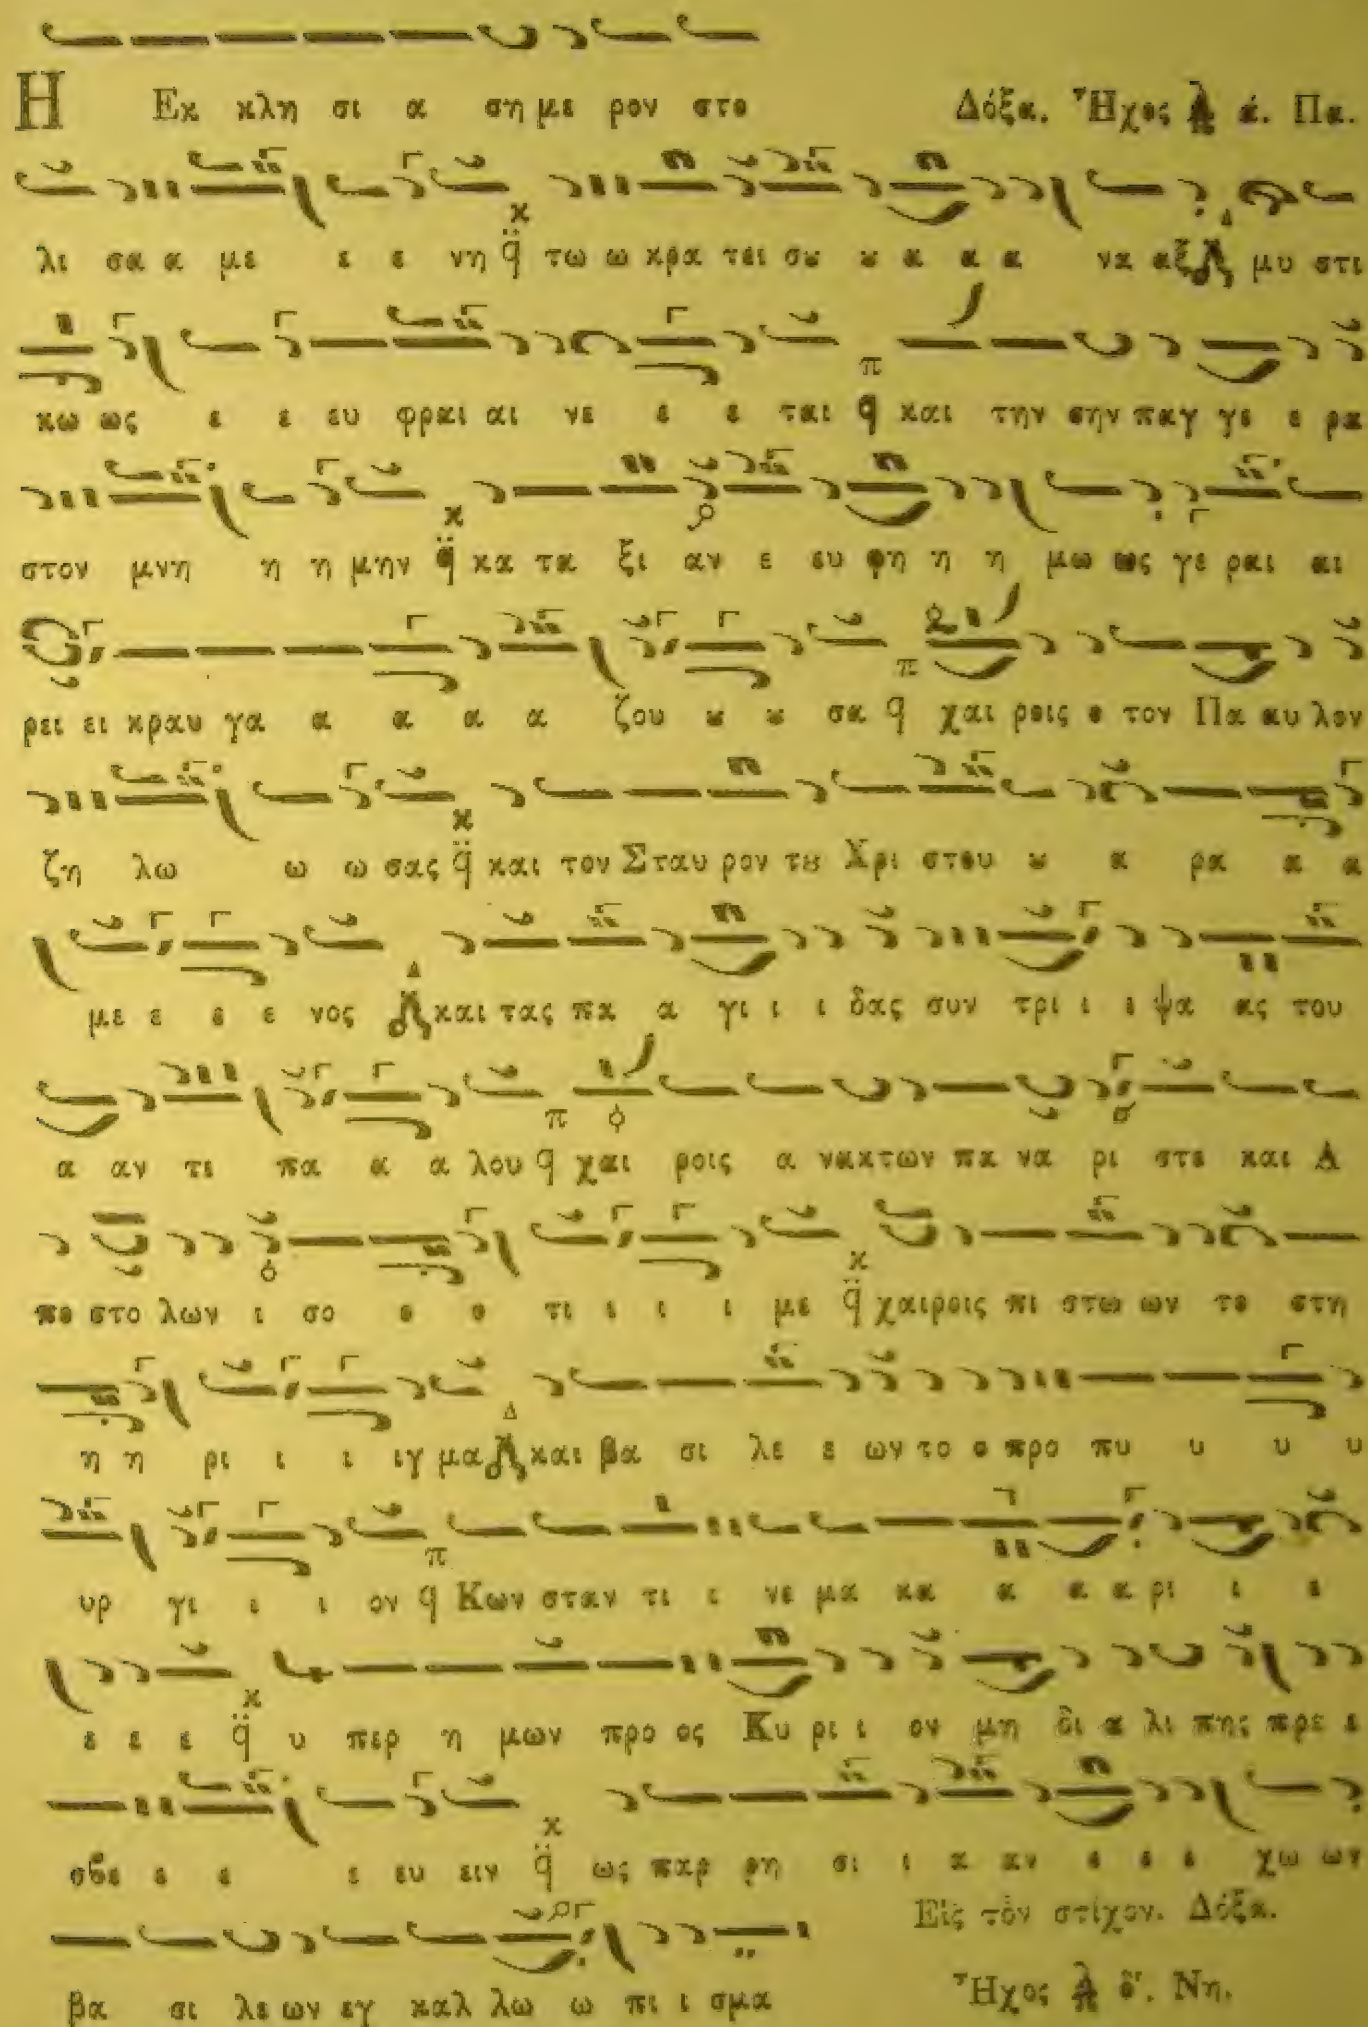 Η Εκ κλη σι α ση με ρον στο Δόξα. Ἦχος ά. Πα.
λι σα α με ε ε νη τω ω κρα τει σȣ ȣ α α α να αξ μυ στι
κω ως ε ε ευ φραι αι νε ε ε ται και την σην παγ γε ε ρα
στον μνη η η μην κα τα ξι αν ε ευ φη η η μω ως γε ραι αι
ρει ει κραυ γα α α α α ζου ȣ ȣ σα χαι ροις ο τον Πα αυ λον
ζη λω ω ω σας και τον Σταυ ρον τȣ Χρι στου ȣ α ρα α α
με ε ε ε νος και τας πα α γι ι ι δας συν τρι ι ι ψα ας του
α αν τι πα α α λου χαι ροις α νακτων πα να ρι στε και Α
πο στο λων ι σο ο ο τι ι ι ι με χαιροις πι στω ων το στη
η η ρι ι ι ιγ μα και βα σι λε ε ων το ο προ πυ υ υ υ
υρ γι ι ι ον Κων σταν τι ι νε μα κα α α α ρι ι ι
ε ε ε υ περ η μων προ ος Κυ ρι ι ον μη δι α λι πης πρε ε
σβε ε ε ε ευ ειν ως παρ ρη σι ι α αν ε ε ε χω ων
βα σι λε ων εγ καλ λω ω πι ι σμα
Εἰς τὸν στίχον. Δόξα.
Ἦχος δ'. Νη.